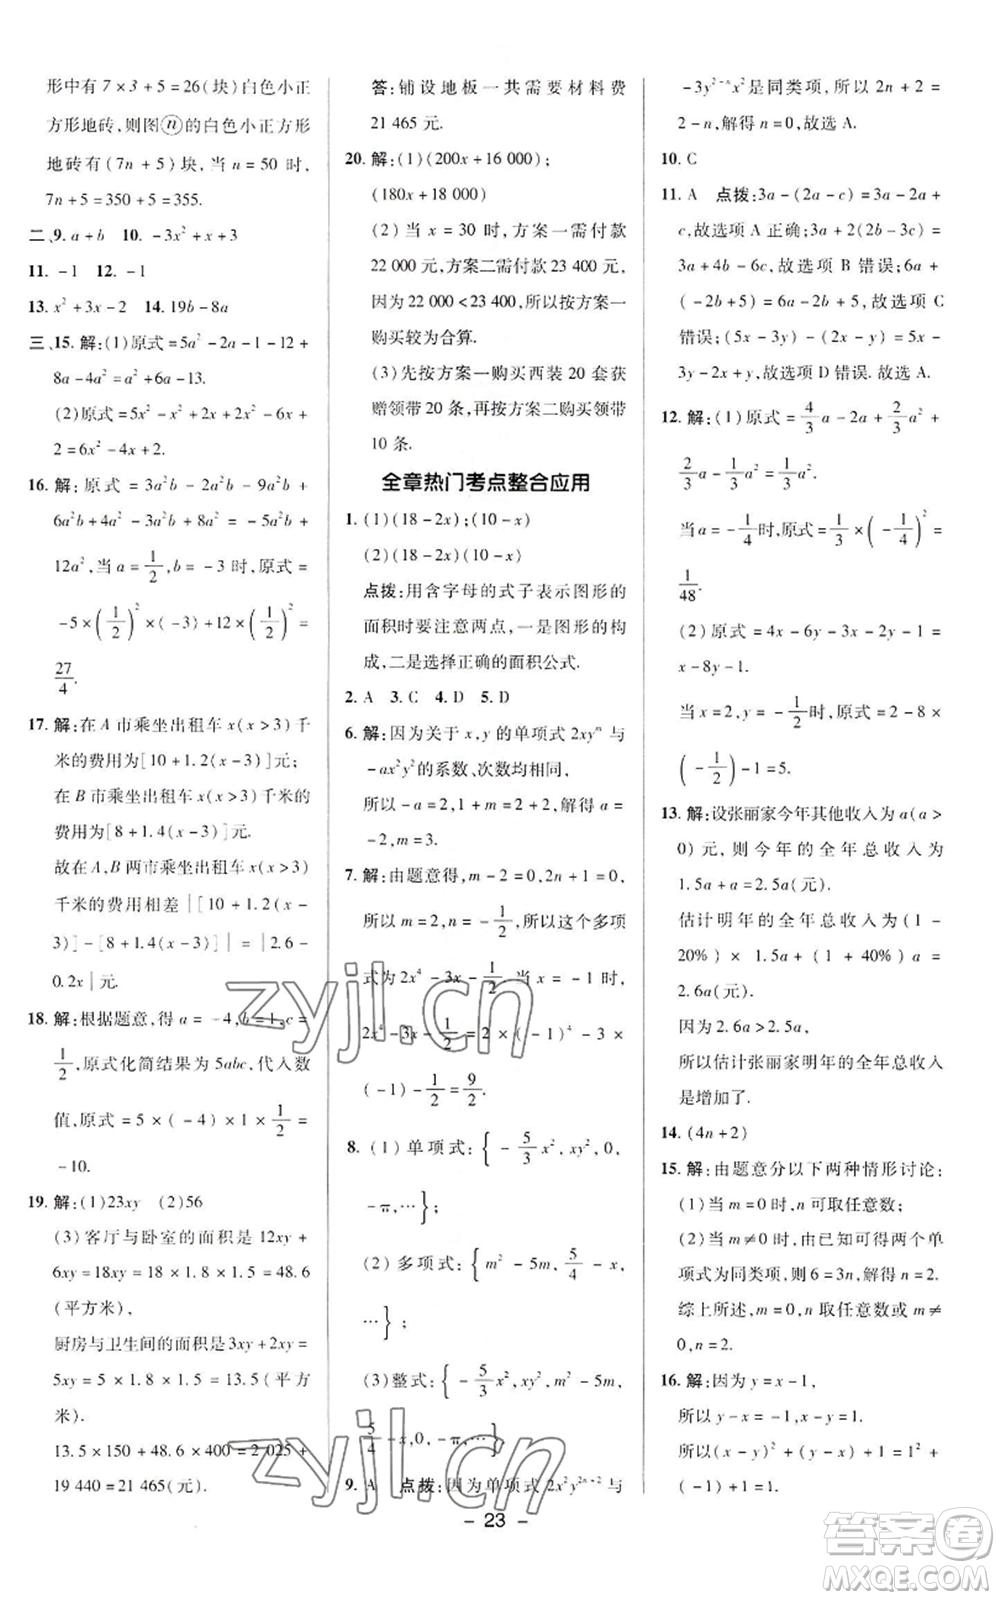 形中有 7×3+5=26(块)白色小正
方形地砖,则图ⓝ的白色小正方形
地砖有(7n+5)块,当 n=50 时,
7n+5=350+5=355.
二、9. a+b  10. -3x²+x+3
11. -1  12. -1
13. x²+3x-2  14. 19b-8a
三、15. 解:(1)原式=5a²-2a-1-12+
8a-4a²=a²+6a-13.
(2)原式=5x²-x²+2x+2x²-6x+
2=6x²-4x+2.
16. 解:原式=3a²b-2a²b-9a²b+
6a²+3a²b+6a²=-5a²b+
12a²,当 a=1/2,b=-3时,原式=
-5×(1/2)²×(-3)+12×(1/2)²=
27/4.
17. 解:在 A 市乘坐出租车 x(x>3)千
米的费用为[10+1.2(x-3)]元;
在 B 市乘坐出租车 x(x>3)千米的
费用为[8+1.4(x-3)]元.
故在A,B两市乘坐出租车 x(x>3)
千米的费用相差|[10+1.2(x-
3)]-[8+1.4(x-3)]|=|2.6-
0.2x|元.
18. 解:根据题意,得 a=-4,b=1,c=
1/2,原式化简结果为5abc,代入数
值,原式=5×(-4)×1×1/2=
-10.
19. 解:(1)23xy  (2)56
(3)客厅与卧室的面积是 12xy+
6xy=18xy=18×1.8×1.5=48.6
(平方米),
厨房与卫生间的面积是3xy+2xy=
5xy=5×1.8×1.5=13.5(平方
米).
13.5×150+48.6×400=2 025+
19 440=21 465(元).
答:铺设地板一共需要材料费
21 465 元.
20. 解:(1)(200x+16 000);
(180x+18 000)
(2)当 x=30 时,方案一需付款
22 000元,方案二需付款23 400元,
因为22 000<23 400,所以按方案一
购买较为合算.
(3)先按方案一购买西装 20 套获
赠领带 20 条,再按方案二购买领带
10 条.
全章热门考点整合应用
1. (1)(18-2x);(10-x)
(2)(18-2x)(10-x)
点拨:用含字母的式子表示图形的
面积时要注意两点,一是图形的构
成,二是选择正确的面积公式.
2. A  3. C  4. D  5. D
6. 解:因为关于 x,y 的单项式 2xyⁿ 与
-ax²y²的系数、次数均相同,
所以-a=2,1+m=2+2,解得 a=
-2,m=3.
7. 解:由题意得,m-2=0,2n+1=0,
所以 m=2,n=-1/2,所以这个多项
式为 2x⁴-3x-1/2. 当 x=-1时,
2x⁴-3x-1/2=2×(-1)⁴-3×
(-1)-1/2=9/2.
8. (1)单项式:{-5/3x²,xy²,0,
-π,…};
(2)多项式:{m²-5m,5/4-x,
…};
(3)整式:{-5/3x²,xy²,m²-5m,
5/4-x,0,-π,…}
9. A  点拨:因为单项式 2x²y²ⁿ⁺² 与
-3y²⁻ⁿx²是同类项,所以 2n+2=
2-n,解得 n=0,故选 A.
10. C
11. A  点拨:3a-(2a-c)=3a-2a+
c,故选项 A 正确;3a+2(2b-1)=
3a+4b-2,故选项 B 错误;6a+
(-2b+5)=6a-2b+5,故选项 C
错误;(5x-3y)-(2x-y)=5x-
3y-2x+y,故选项D错误.故选A.
12. 解:(1)原式=4/3a-2a+2/3a²+
2/3a-1/3a²=1/3a².
当 a=-1/4时,原式=1/3×(-1/4)²=
1/48.
(2)原式=4x-6y-3x-2y-1=
x-8y-1.
当 x=2,y=-1/2时,原式=2-8×
(-1/2)-1=5.
13. 解:设张丽家今年其他收入为a(a>
0)元,则今年的全年总收入为
1.5a+a=2.5a(元).
估计明年的全年总收入为(1-
20%)×1.5a+(1+40%)a=
2.6a(元).
因为2.6a>2.5a,
所以估计张丽家明年的全年总收入
是增加了.
14. (4n+2)
15. 解:由题意分以下两种情形讨论:
(1)当 m=0时,n可取任意数;
(2)当 m≠0时,由已知可得两个单
项式为同类项,则6=3n,解得 n=2.
综上所述,m=0,n取任意数或 m≠
0,n=2.
16. 解:因为 y=x-1,
所以 y-x=-1,x-y=1.
所以(x-y)²+(y-x)+1=1²+
(-1)+1=1.
- 23 -
zyjl.cn
zyjl.cn
答案圈
MXQE.COM